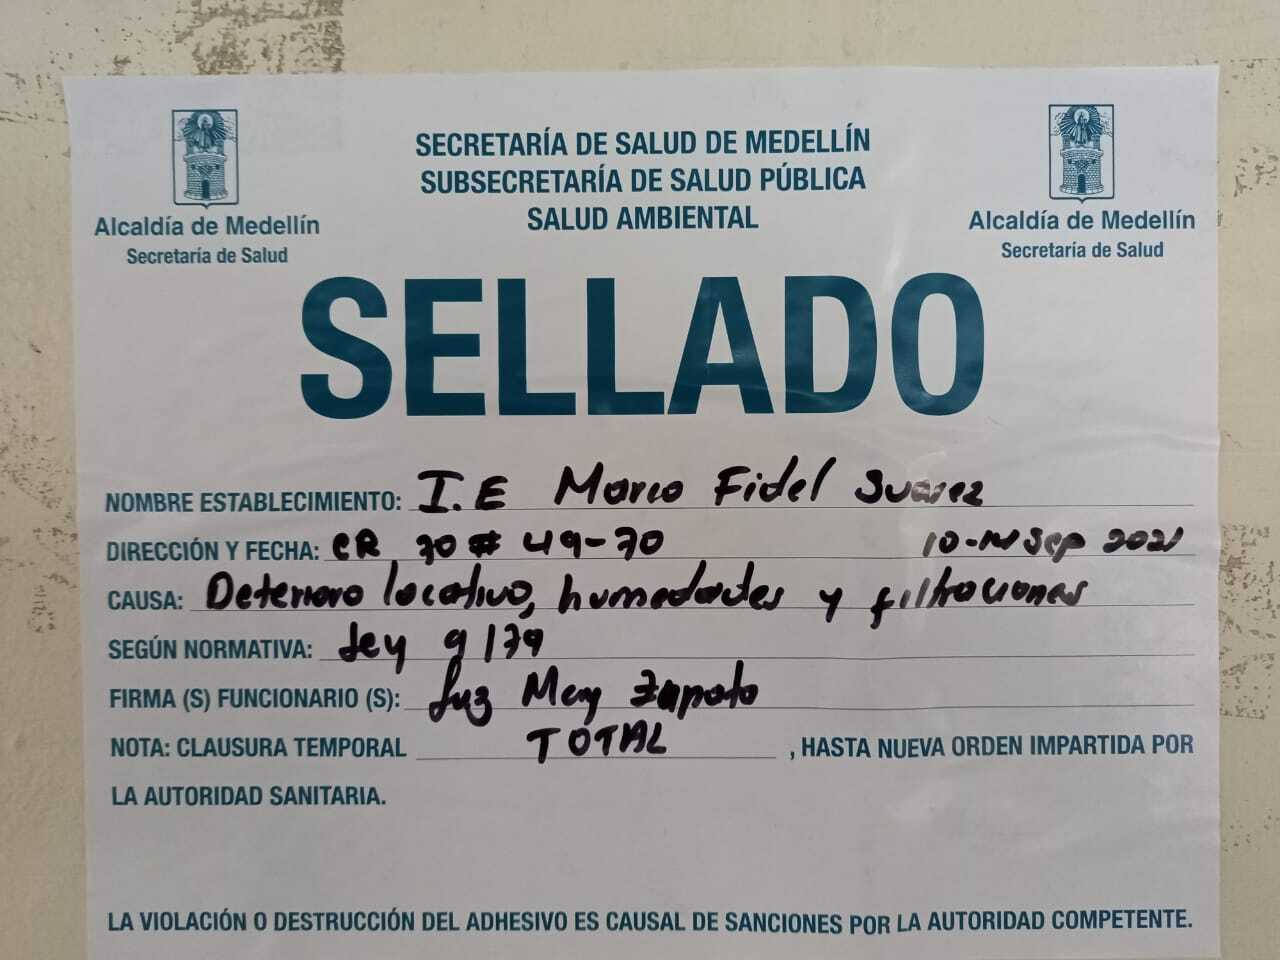 SECRETARÍA DE SALUD DE MEDELLÍN
SUBSECRETARÍA DE SALUD PÚBLICA
SALUD AMBIENTAL
Alcaldía de Medellín
Secretaría de Salud
Alcaldía de Medellín
Secretaría de Salud
SELLADO
NOMBRE ESTABLECIMIENTO: I.E Marco Fidel Suárez
DIRECCIÓN Y FECHA: CR 70 # 49-70 Sep 2021
CAUSA: Deterioro locativo, humedades y filtraciones
SEGÚN NORMATIVA: Ley 9/79
FIRMA (S) FUNCIONARIO (S): Luz Mery Zapata
NOTA: CLAUSURA TEMPORAL TOTAL , HASTA NUEVA ORDEN IMPARTIDA POR
LA AUTORIDAD SANITARIA.
LA VIOLACIÓN O DESTRUCCIÓN DEL ADHESIVO ES CAUSAL DE SANCIONES POR LA AUTORIDAD COMPETENTE.